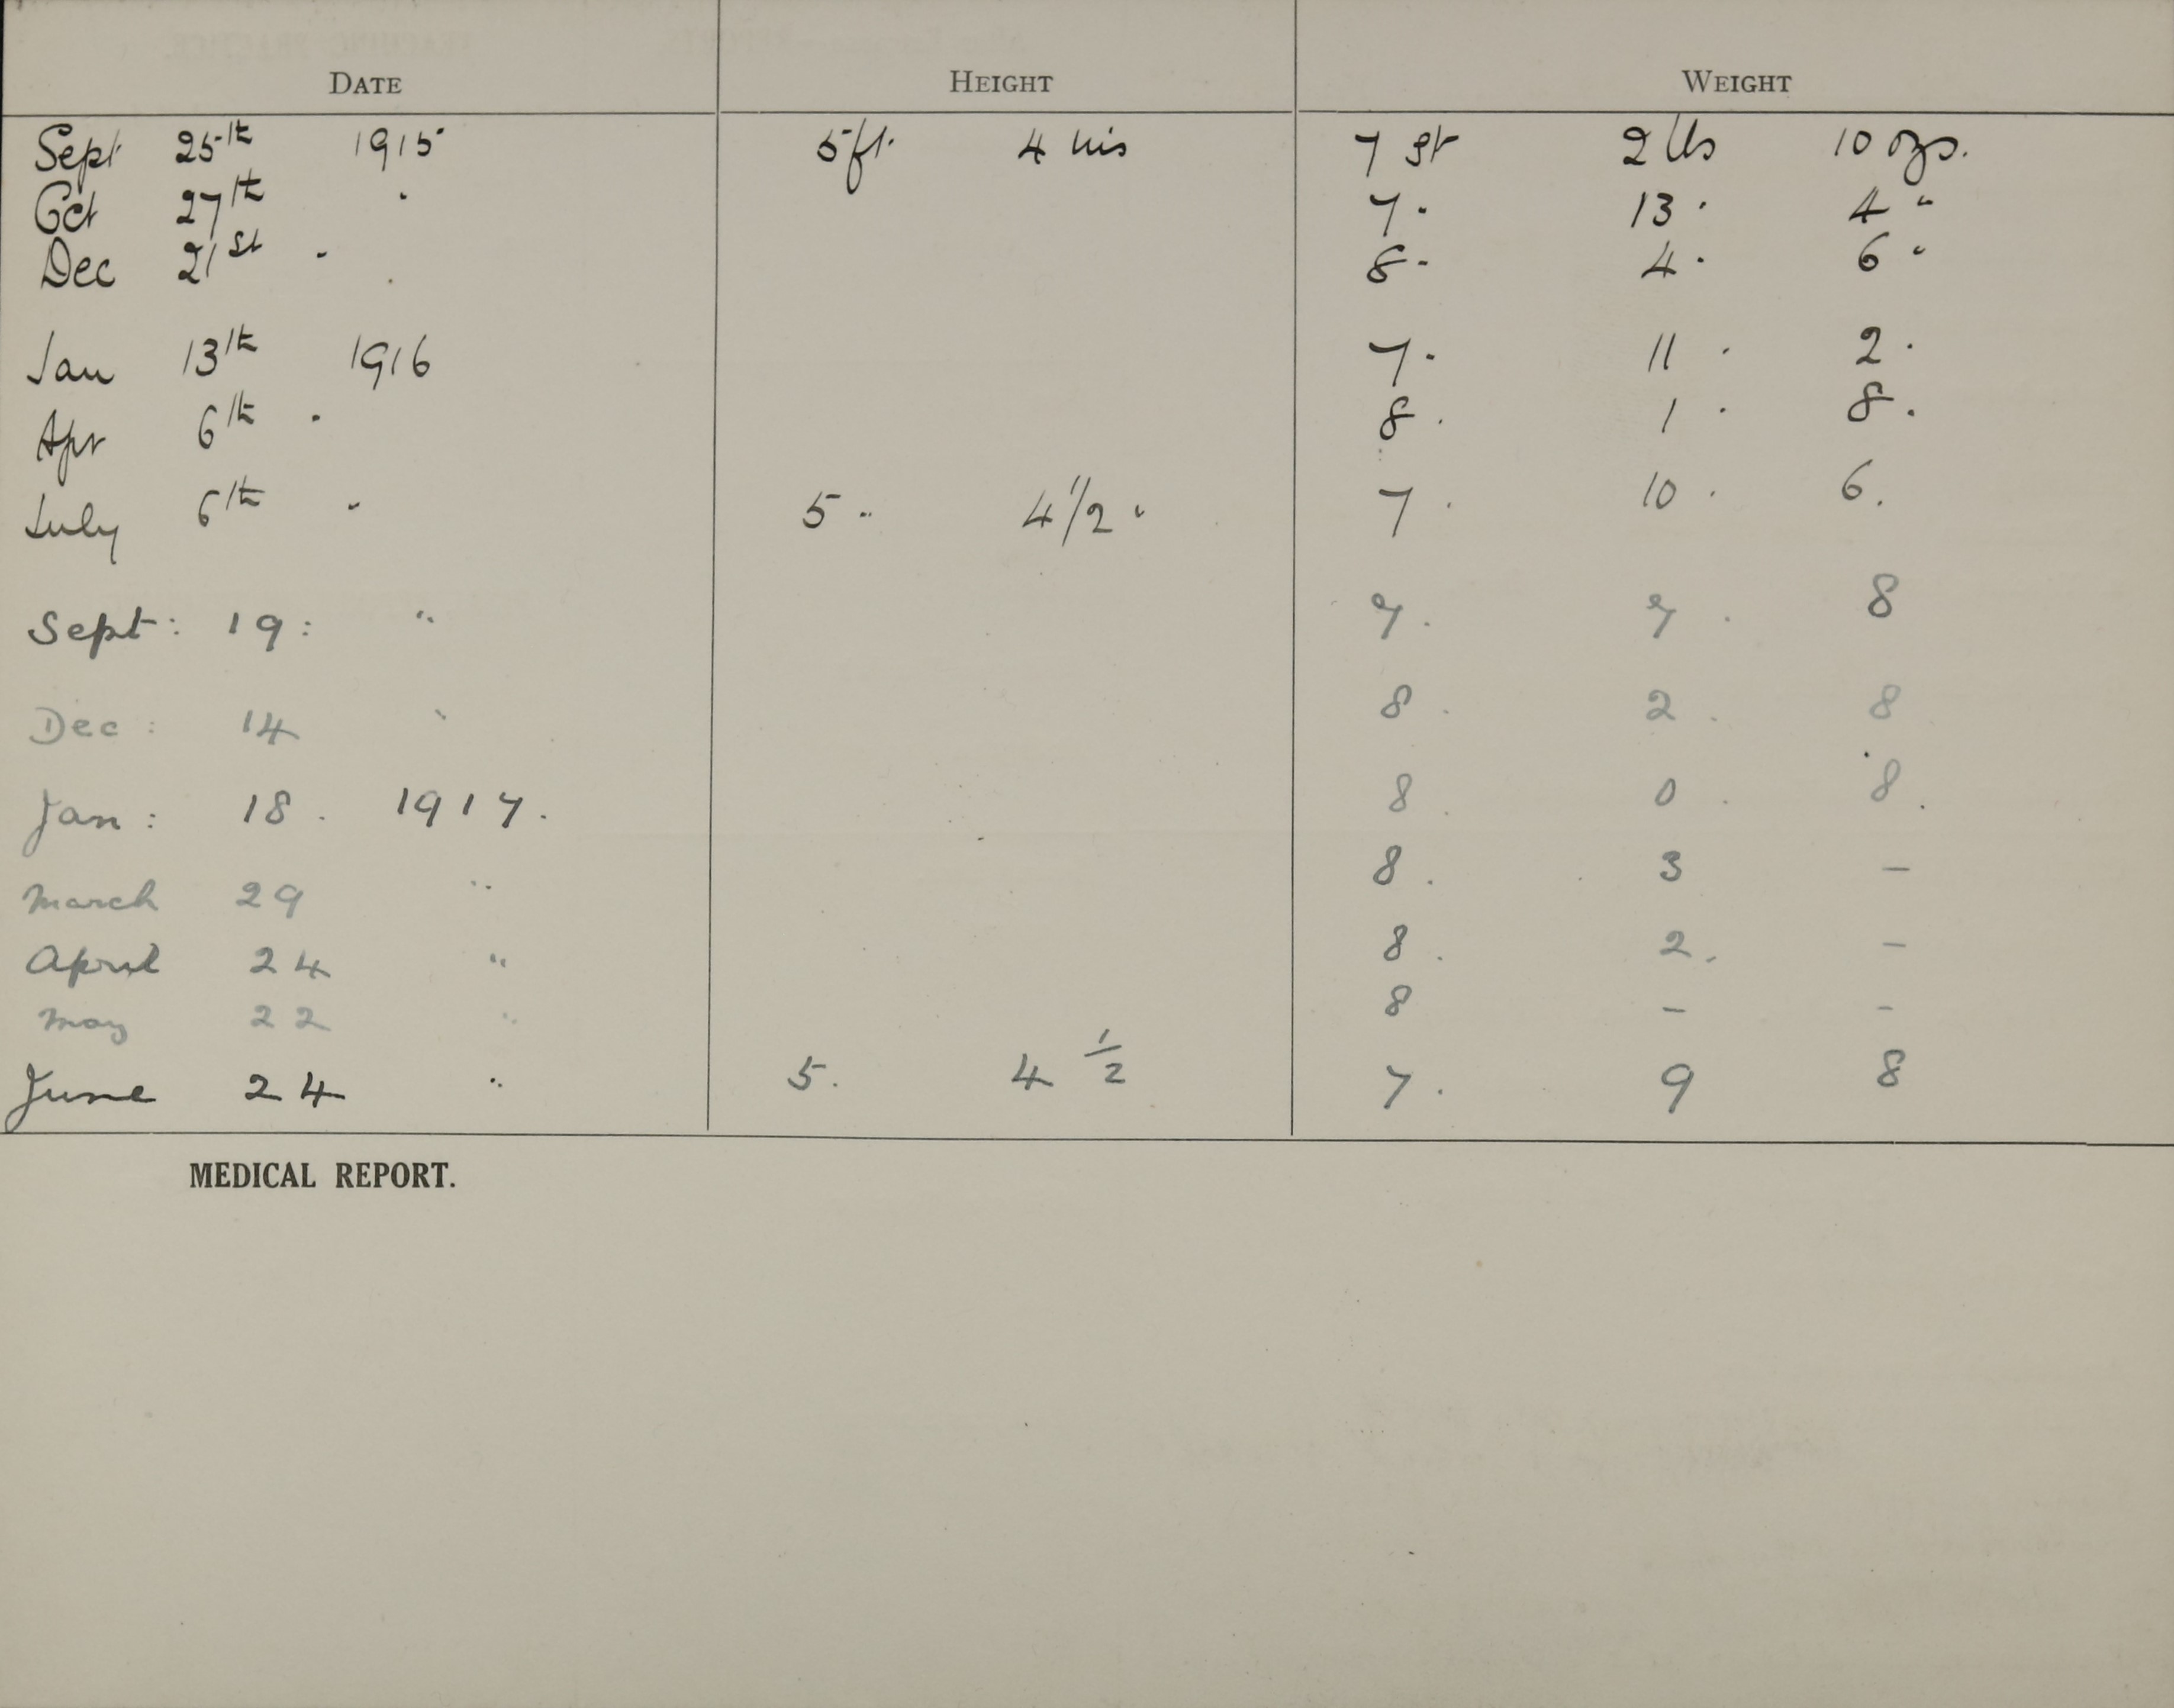 DATE HEIGHT WEIGHT
Sept 25th 1915 5ft. 4 ins 7 st 2 lbs 10 ozs.
Oct 27th " 7 " 13 " 4 "
Dec 21st " 8 " 4 " 6 "
Jan 13th 1916 7 " 11 " 2 "
Apr 6th " 8 . 1 . 8 .
July 6th " 5 " 4 1/2 " 7 . 10 . 6 .
Sept : 19 : " 7 . 7 . 8
Dec : 14 " 8 . 2 . 8
Jan : 18 . 1917 . 8 . 0 . 8 .
March 29 " 8 . 3 –
April 24 " 8 . 2 . –
May 22 " 8 – –
June 24 " 5 . 4 1/2 7 . 9 8
MEDICAL REPORT.